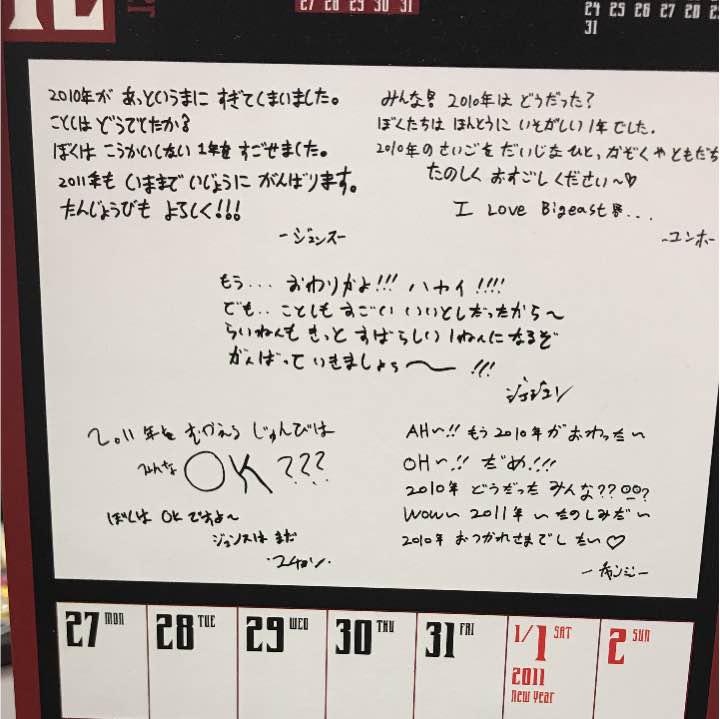 12
27 28 29 30 31
24 25 26 27 28
31
2010年が あっというまに すぎてしまいました。
ことしは どうでてたか?
ぼくは こうかいしない 1年を すごせました。
2011年も いままで いじょうに がんばります。
たんじょうびも よろしく!!!
-ジュンス-
みんな 2010年は どうだった?
ぼくたちは ほんとうに いそがしい 1年でした.
2010年の さいごを だいじな ひと、かぞくや ともだち
たのしく おすごしください~♡
I Love Bigeast...
-ユンホ-
もう... おわりかよ!!! ハヤイ !!!!
でも.. ことしも すごい いいとしだったから~
らいねんも きっと すばらしい 1ねんに なるぞ
がんばって いきましょぅ~ !!!
ジェジュン
2011年を むかえる じゅんびは
みんな OK???
ぼくは OK ですよ~
ジュンスは まだ
・ユチョン・
AH~!! もう 2010年が おわった~
OH~!! だめ!!!
2010年 どうだった みんな???
Wow~ 2011年~ たのしみだ~
2010年 おつかれさまでした~♡
27 MON
28 TUE
29 WED
30 THU
31 FRI
1/1 SAT
2011
New Year
2 SUN